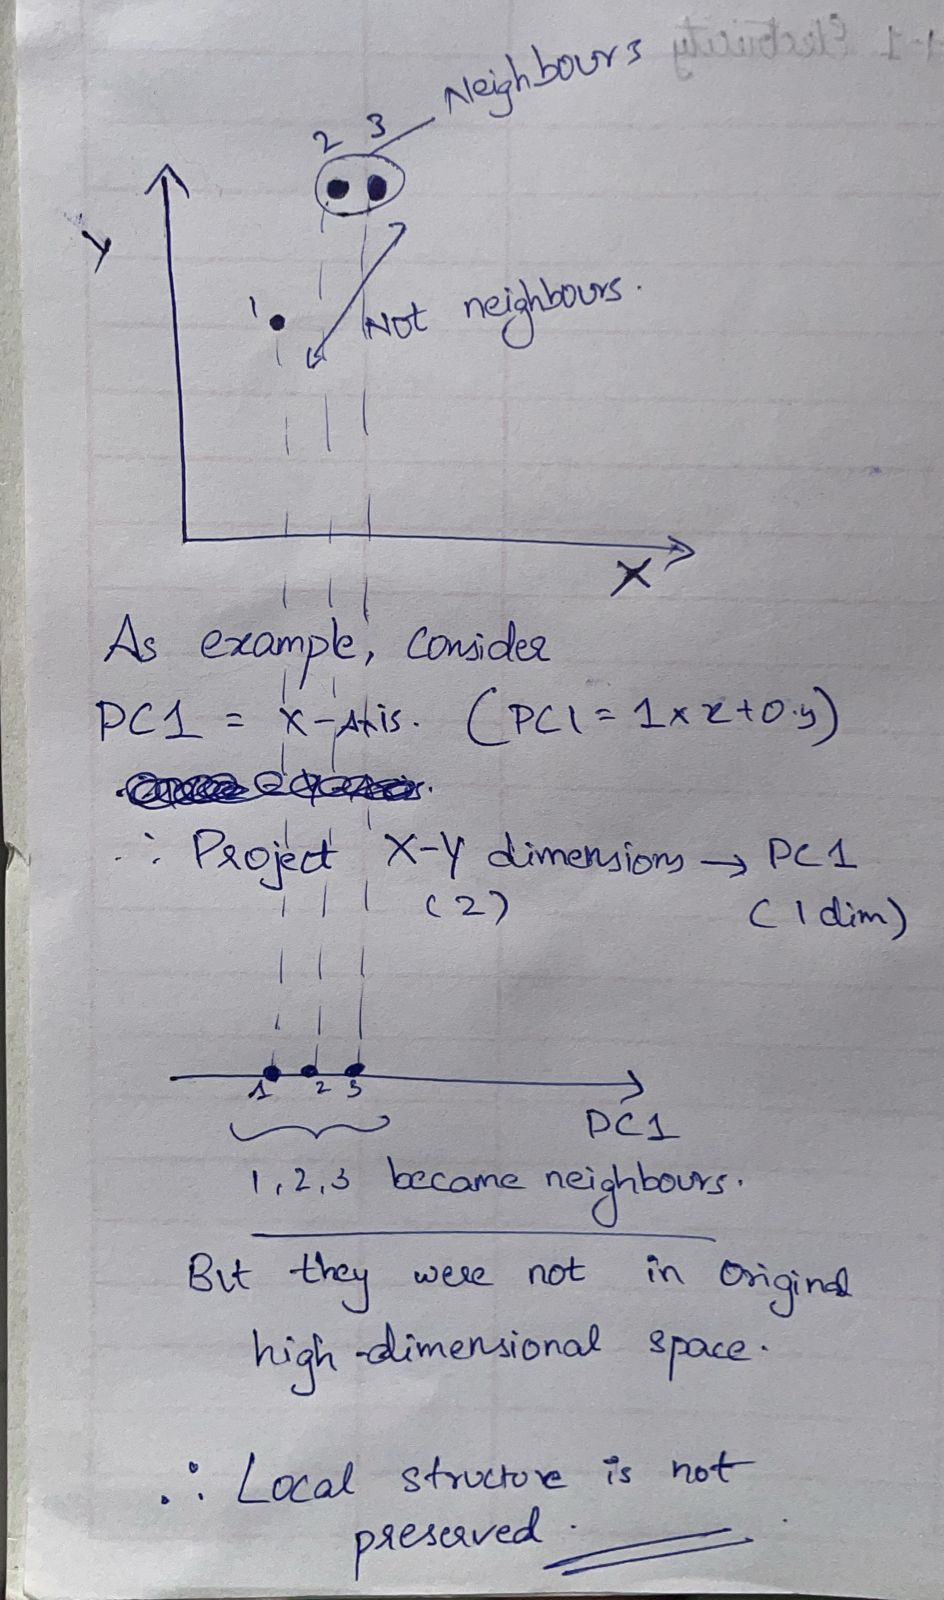 Neighbours
2 3
Y
1
Not neighbours.
X
As example, consider
PC1 = X-Axis. (PC1 = 1×x+0.y)
∴ Project X-Y dimensions → PC1
(2) (1 dim)
1 2 3
PC1
1,2,3 became neighbours.
But they were not in original
high-dimensional space.
∴ Local structure is not
preserved.